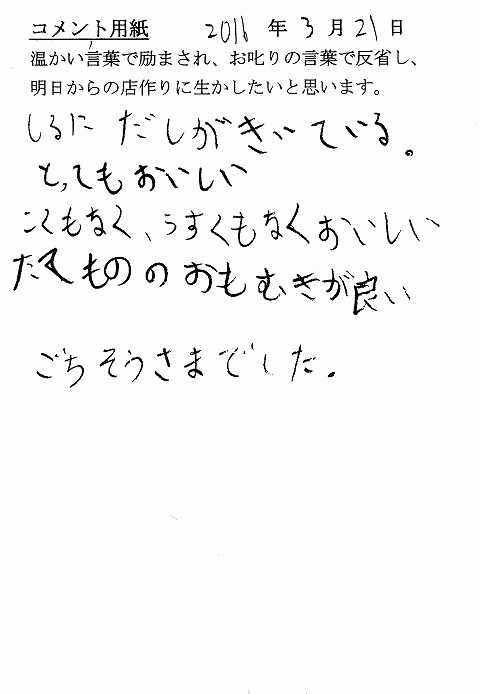 コメント用紙 2016 年 3 月 21 日
温かい言葉で励まされ、お叱りの言葉で反省し、
明日からの店作りに生かしたいと思います。
しるに だしがきいている。
とってもおいしい
こくもなく、うすくもなくおいしい
たてもののおもむきが良い
ごちそうさまでした。